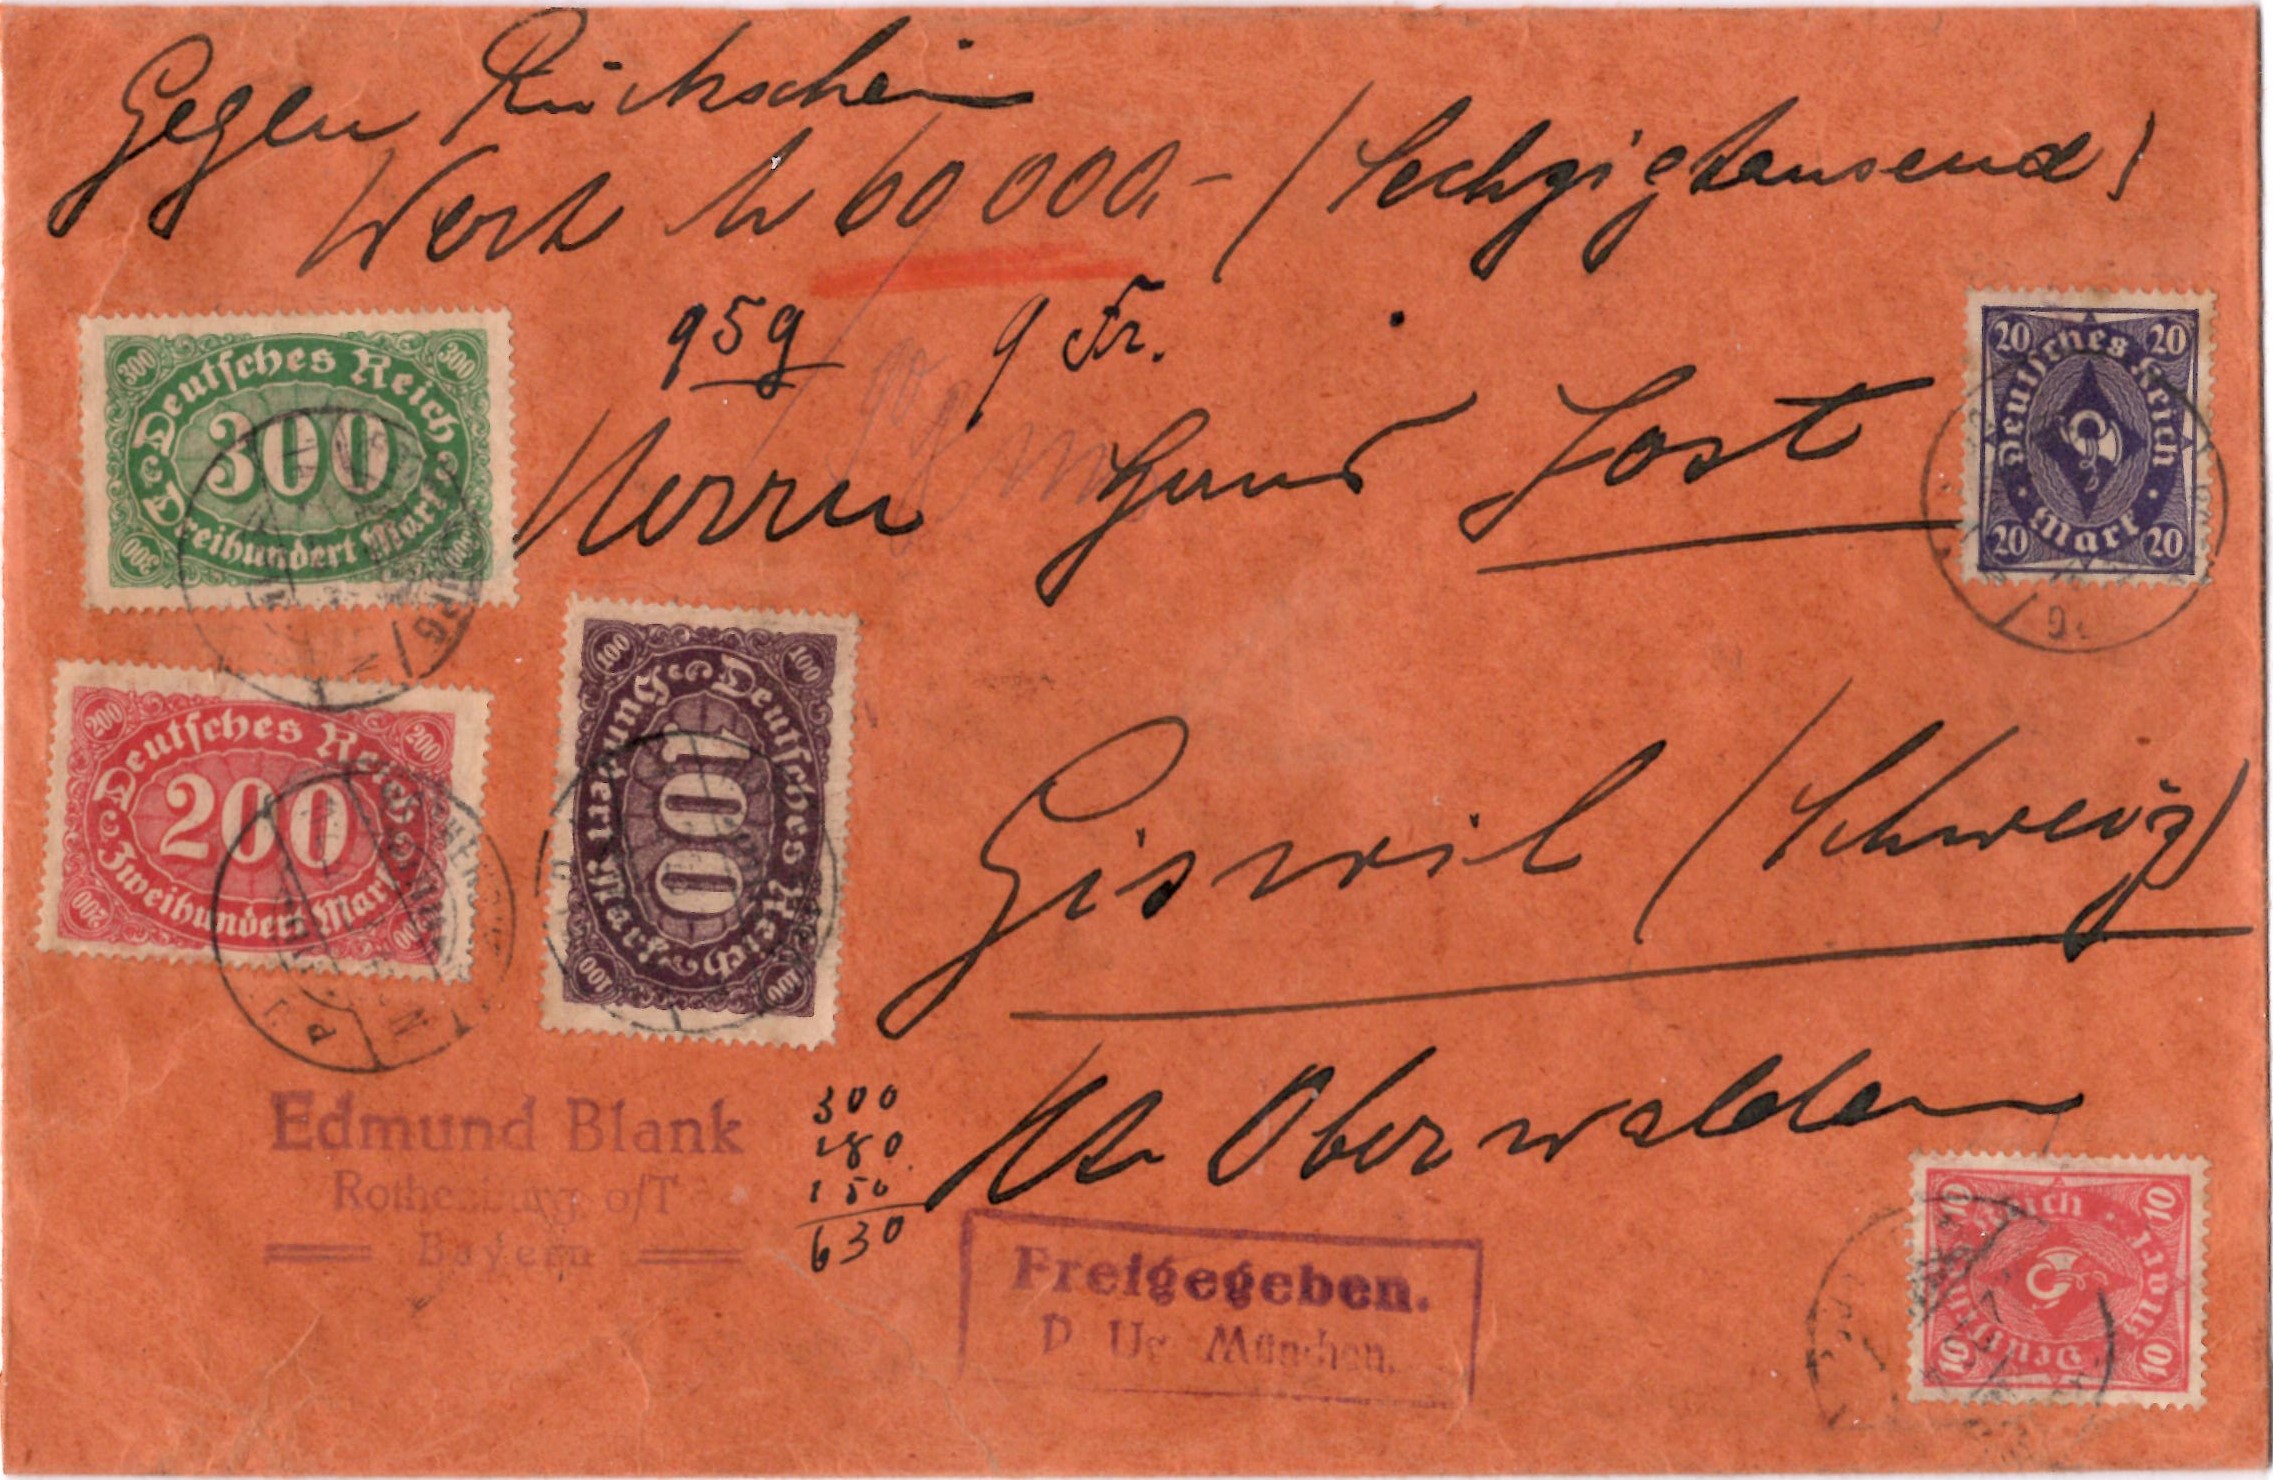 Gegen Rückschein
Wert M 60 000,- (Sechzigtausend)
95g 9 Fr.
Herrn Jost
Giswil (Schweiz)
Kt. Oberwalden
300
Deutsches Reich
300
300
Dreihundert Mark
300
300
200
Deutsches Reich
200
200
Zweihundert Mark
200
200
100
Deutsches Reich
100
100
Hundert Mark
100
100
20
Deutsches Reich
20
Mark
20
20
10
Deutsches Reich
10
Mark
10
10
Edmund Blank
Rothenburg o/T
Bayern
300
180
150
630
Freigegeben.
München.